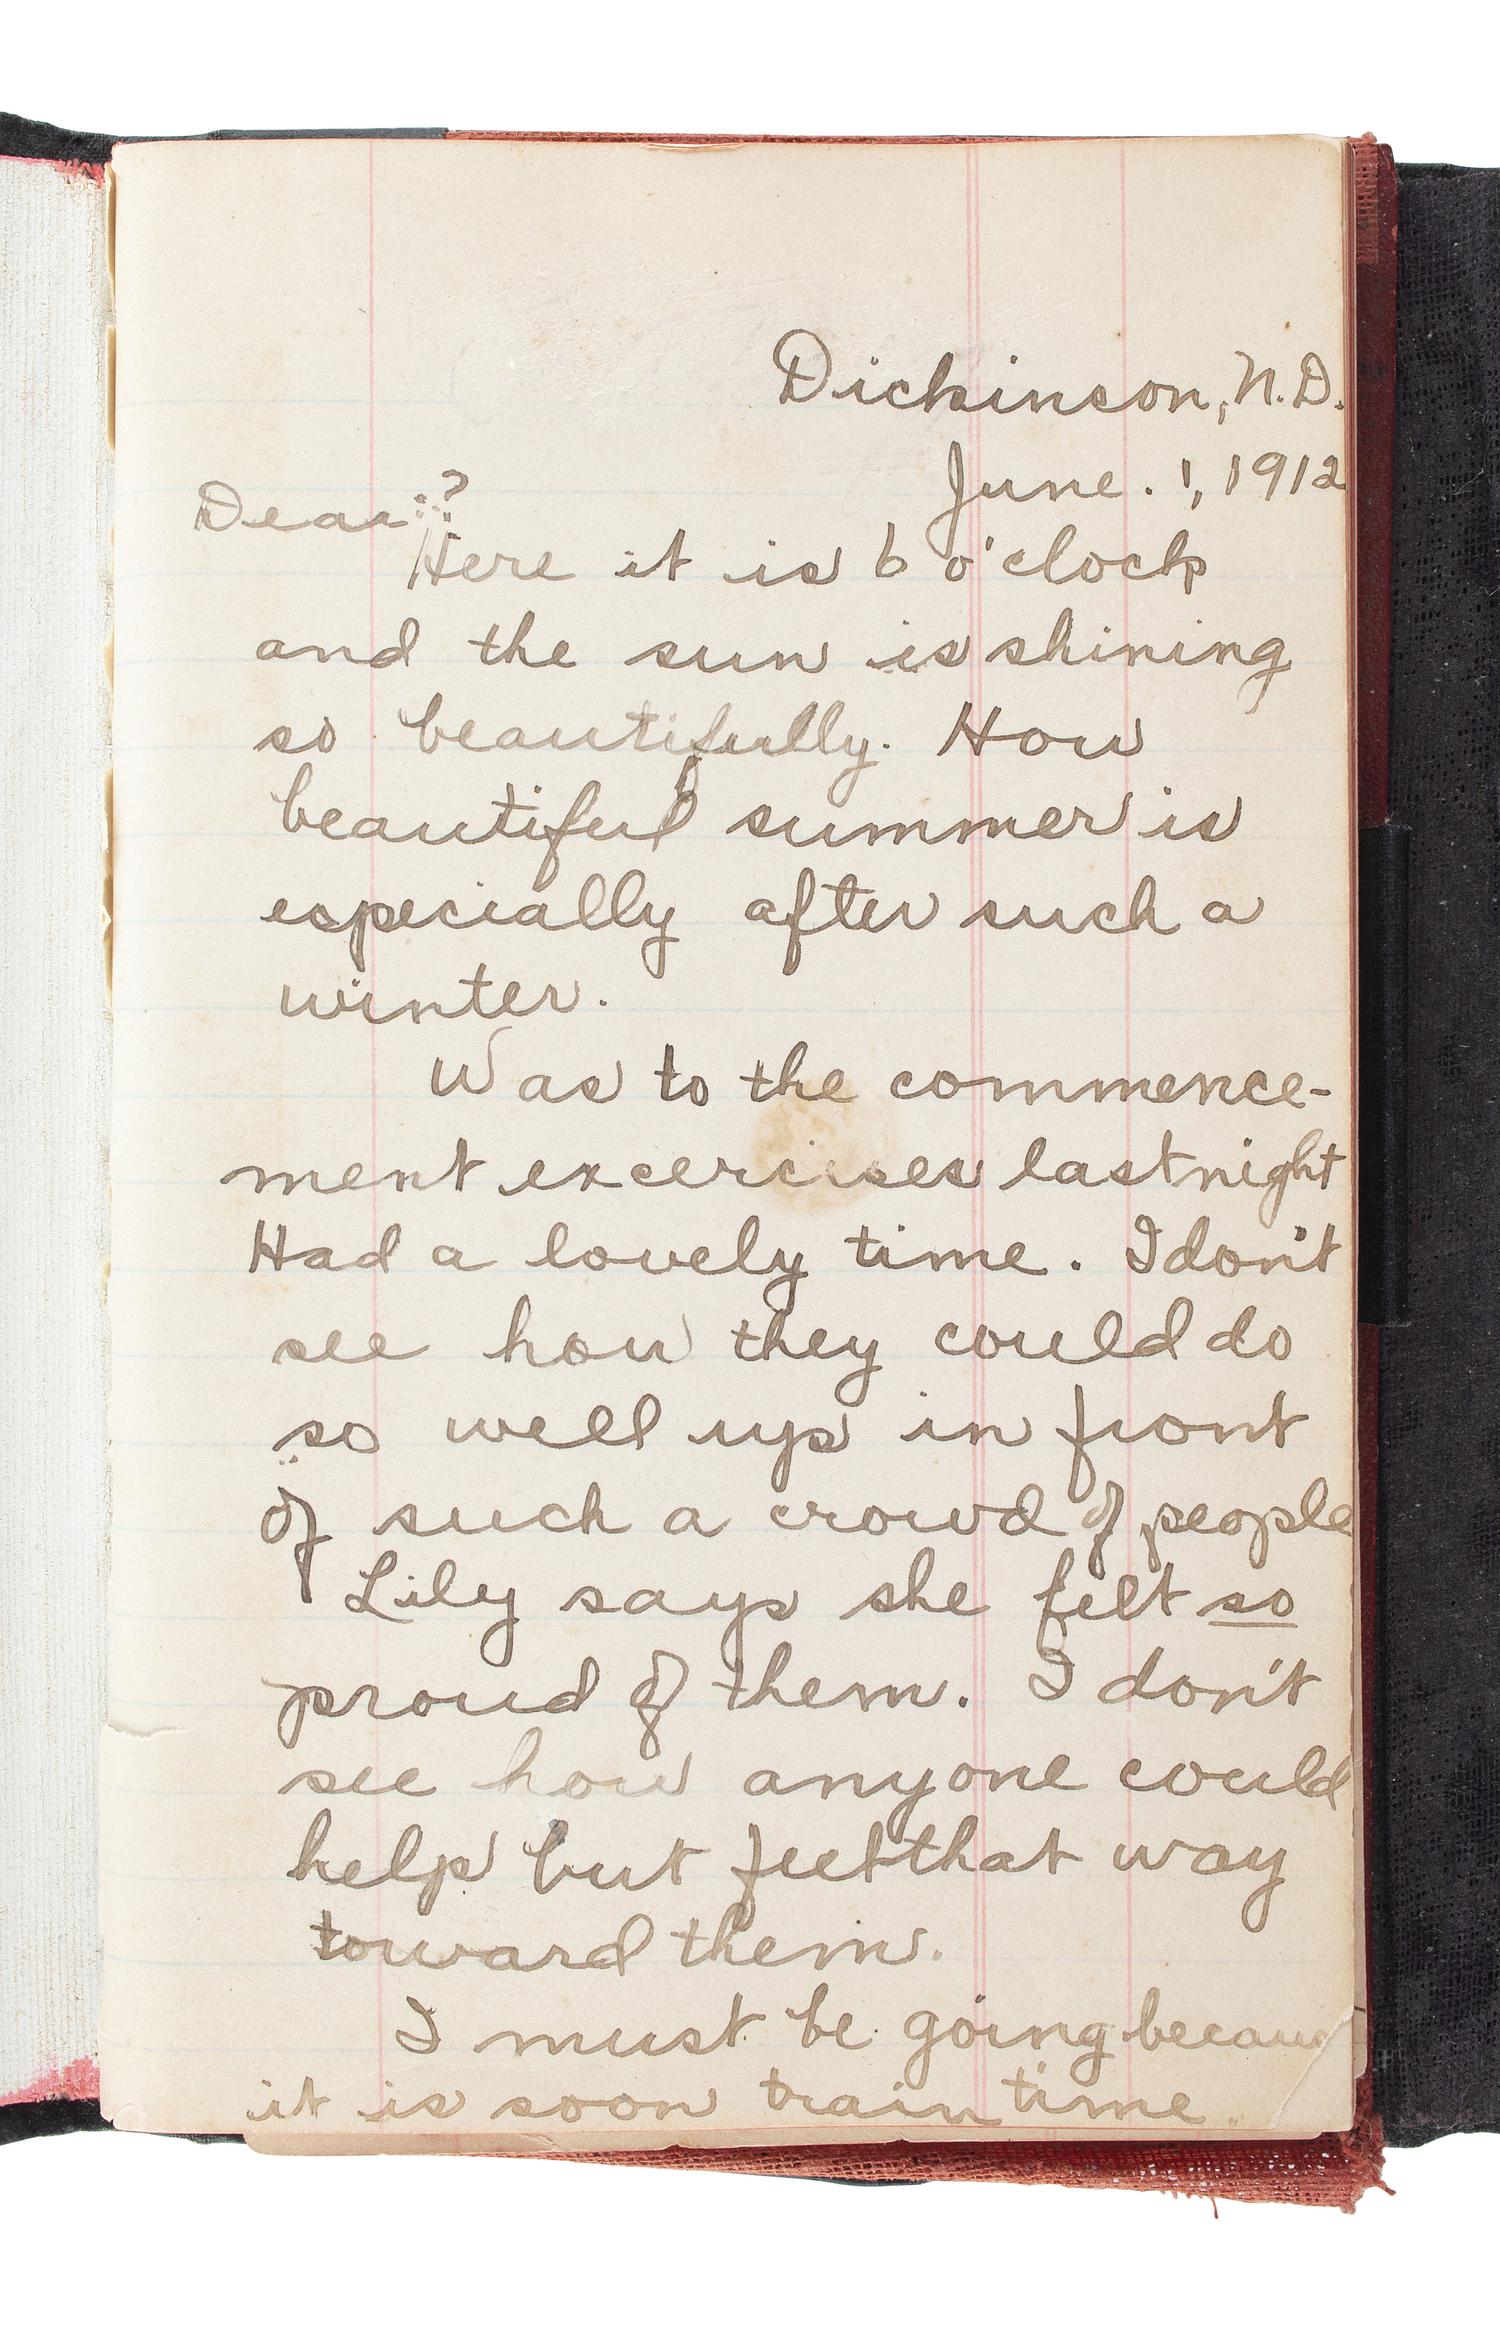 Dickinson, N.D.
June. 1, 1912
Dear ?
Here it is 6 o'clock
and the sun is shining
so beautifully. How
beautiful summer is
especially after such a
winter.
Was to the commence-
ment excercises last night
Had a lovely time. I don't
see how they could do
so well up in front
of such a crowd of people
Lily says she felt so
proud of them. I don't
see how anyone could
help but feel that way
toward them.
I must be going becaus
it is soon train time.